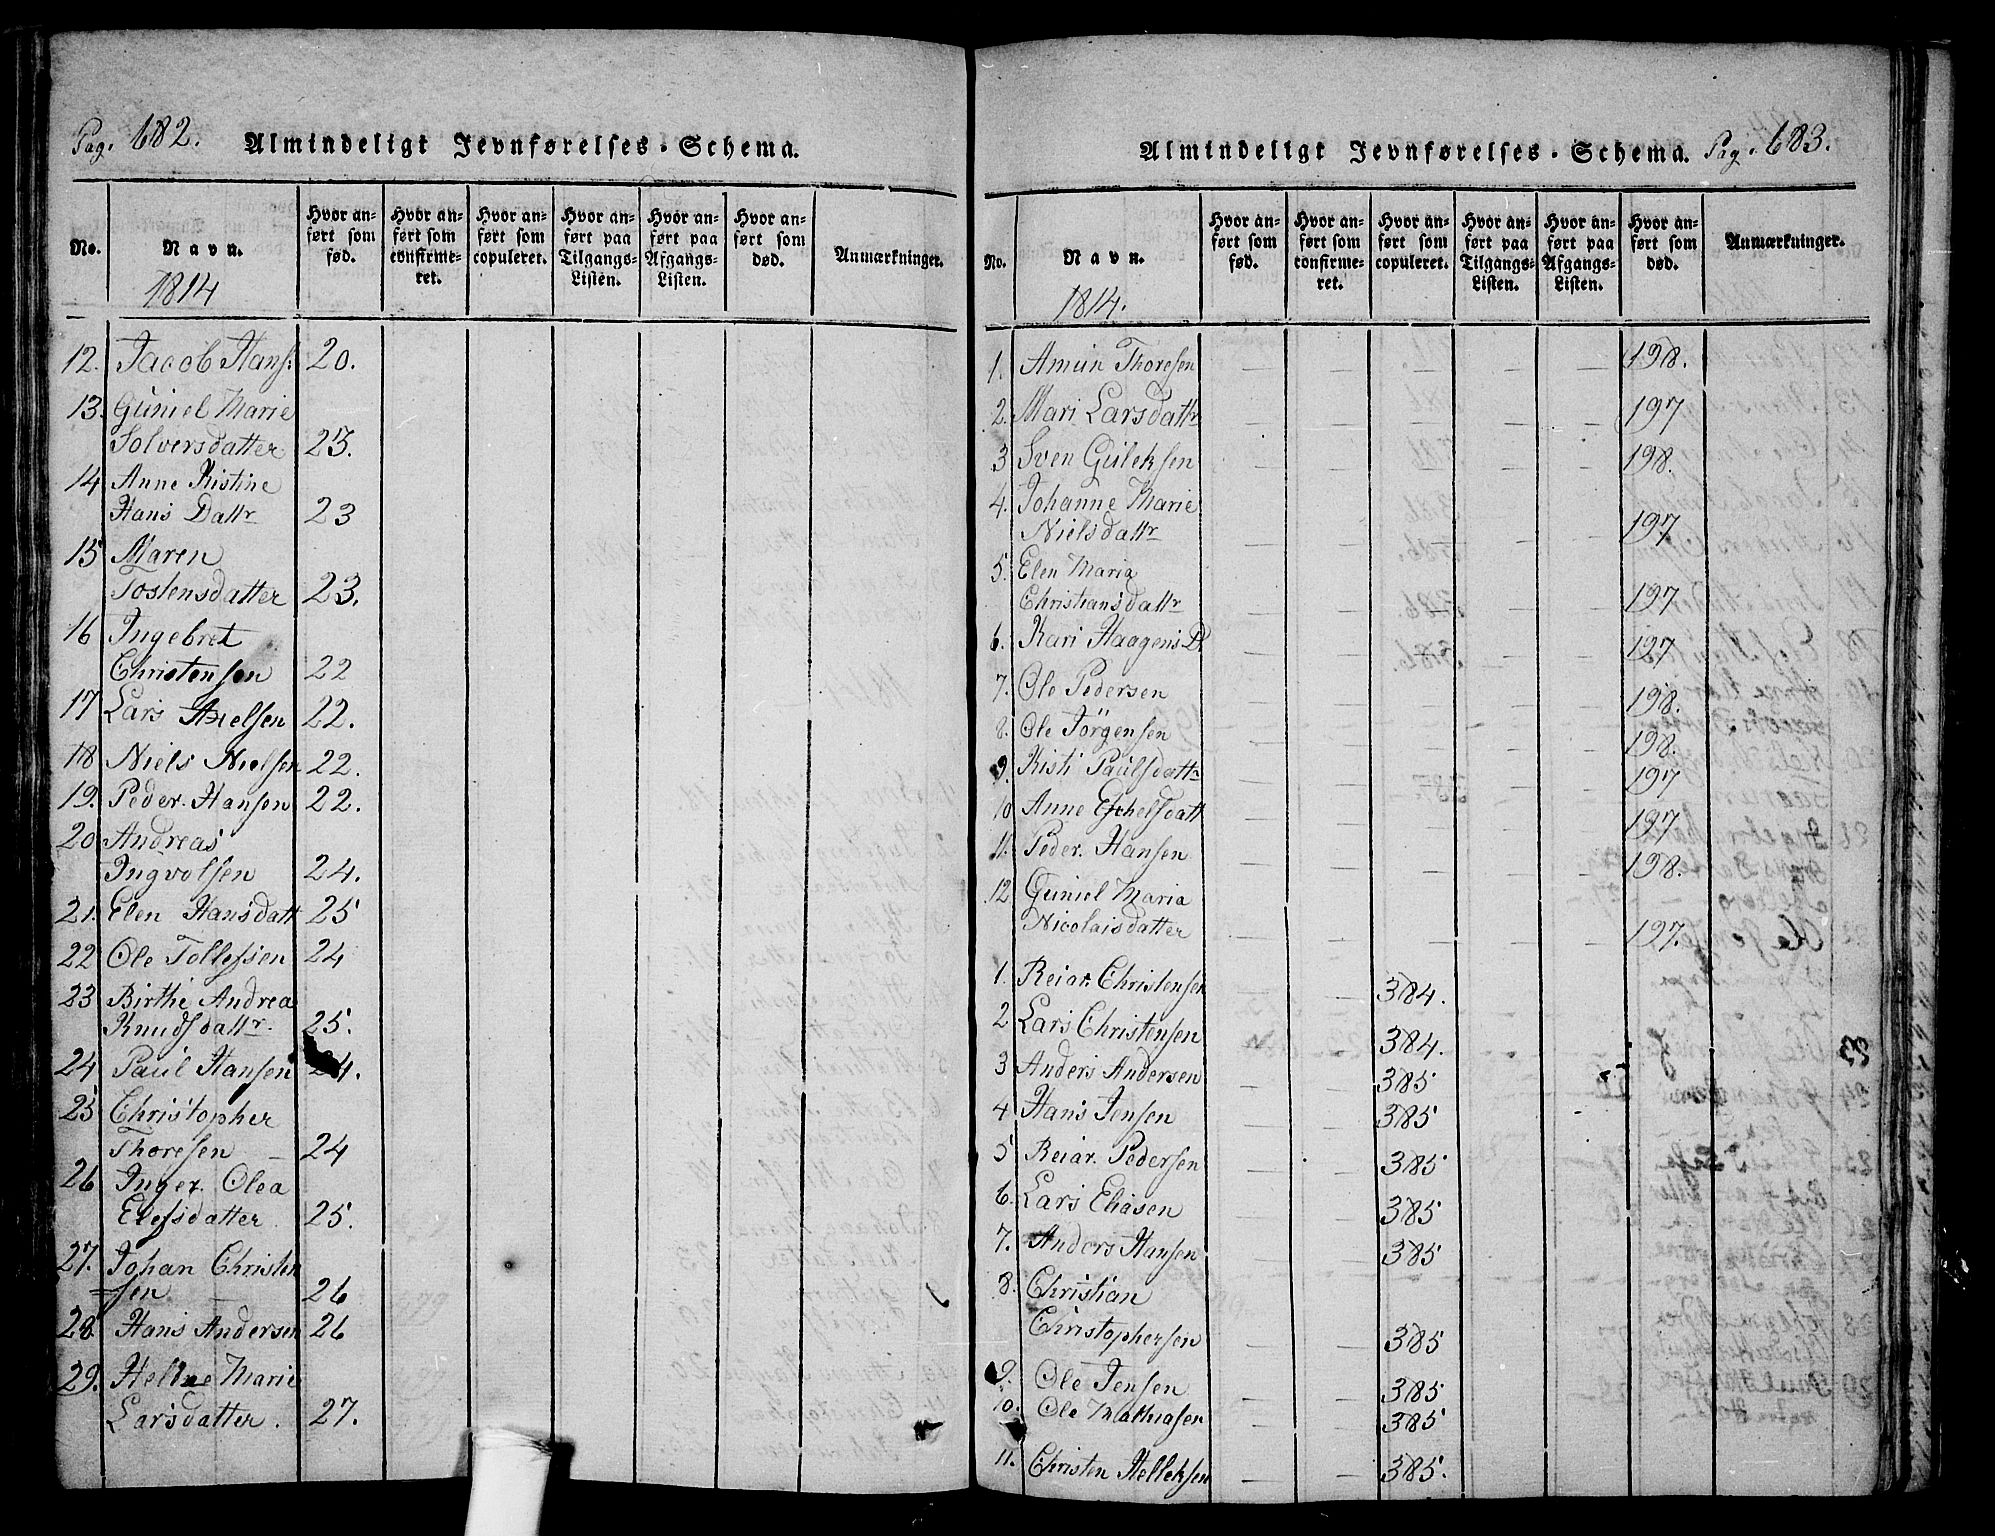 Pag. 682. Almindeligt Jevnførelses-Schema.
No. Navn. Hvor anført som fød. Hvor anført som confirmeret. Hvor anført som copuleret. Hvor anført paa Tilgangs-Listen. Hvor anført paa Afgangs-Listen. Hvor anført som død. Anmærkninger.
1814
12. Jacob Hans: 20.
13. Guniel Marie
Solversdatter 23.
14 Anne Kistine
Hans Dattr 23
15 Maren
Tostensdatter 23.
16 Ingebret
Christensen 22
17 Lars Axelsen 22.
18 Niels Nielsen 22.
19. Peder Hansen 22.
20 Andreas
Ingvolsen 24.
21. Elen Hansdatt 25
22 Ole Tollefsen 24
23 Birthe Andrea
Knudsdattr. 25.
24 Paul Hansen 24.
25 Christopher
Thoresen 24
26 Inger Olea
Elefsdatter 25.
27. Johan Christen
sen 26
28 Hans Andersen 26
29. Helene Marie
Larsdatter. 27.
Almindeligt Jevnførelses-Schema. Pag. 683.
No. Navn. Hvor anført som fød. Hvor anført som confirmeret. Hvor anført som copuleret. Hvor anført paa Tilgangs-Listen. Hvor anført paa Afgangs-Listen. Hvor anført som død. Anmærkninger.
1814.
1. Amun Thoresen 198.
2. Mari Larsdattr 197
3 Sven Guleksen 198.
4. Johanne Marie
Nielsdattr 197
5. Elen Maria
Christiansdattr 197
6. Kari Haagens D 197
7. Ole Pedersen 198.
8. Ole Jörgensen 198.
9. Kisti Paulsdattr 197
10 Anne Eskelsdatt 197
11. Peder Hansen 198.
12 Guniel Maria
Nicolaisdatter 197.
1. Reiar Christensen 384.
2 Lars Christensen 384.
3 Anders Andersen 385
4 Hans Jensen 385
5 Reiar Pedersen 385
6. Lars Eliasen 385
7. Anders Hansen 385
8. Christian
Christophersen 385
9. Ole Jensen 385
10. Ole Mathiasen 385
11. Christen Helleksen 385.